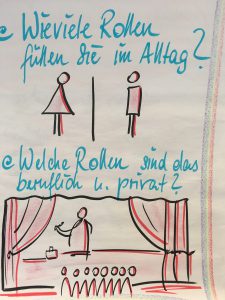 Wieviele Rollen
füllen Sie im Alltag?
Welche Rollen sind das
beruflich u. privat?